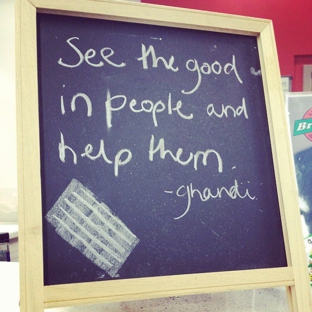 See the good
in people and
help them.
-ghandi
Br